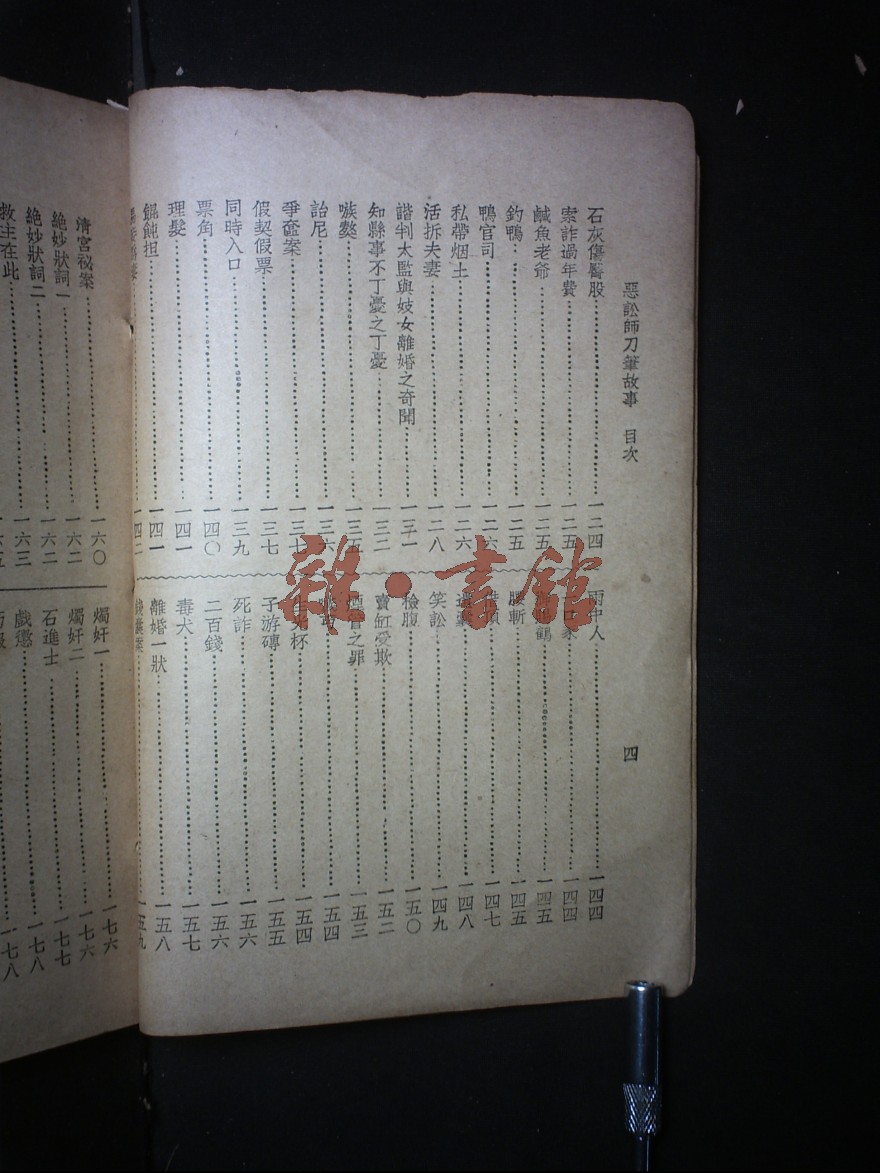 惡訟師刀筆故事 目次
四
石灰傷臀股 一二四
索詐過年費 一二五
鹹魚老爺 一二五
釣鴨 一二五
鴨官司 一二六
私帶烟土 一二六
活拆夫妻 一二八
諧判太監與妓女離婚之奇聞 一三一
知縣事不丁憂之丁憂 一三二
嗾獒 一三五
詒尼 一三六
爭奩案 一三七
假契假票 一三七
同時入口 一三九
票角 一四〇
理髮 一四一
餛飩担 一四一
一四二
雨中人 一四四
一四四
一四五
腰斬 一四五
一四七
一四八
笑訟 一四九
檢腹 一五〇
賣缸受欺 一五二
之罪 一五三
一五四
杯 一五四
子游磚 一五五
死詐 一五六
二百錢 一五六
毒犬 一五七
離婚一狀 一五八
一五九
清宮祕案 一六〇
絕妙狀詞一 一六二
絕妙狀詞二 一六二
救主在此 一六三
燭奸一 一七六
燭奸二 一七六
石進士 一七七
戲懲 一七八
一七八
雜·書館